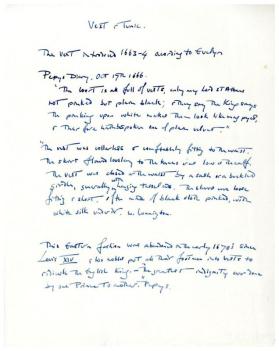 Vest & Tunic.
The vest introduced 1663-4 according to Evelyn
Pepys Diary, Oct 17th 1666.
"The Court is all full of vests, only my Lord St Albans
not pinked but plain black; & they say the King says
the pinking upon white makes them look like magpies,
& therefore hath bespoken one of plain velvet."
"The vest was collarless & comfortably fitting to the waist.
The skirt flared loosely to the knees
The vest was closed at the waist by a sash or a buckled
girdle, generally with hanging tasselled ends. The sleeves were loose
fitting & short, often made of black cloth pinked, with
white silk under it.
This Eastern fashion was abandoned in the early 1670's since
Louis XIV had put all their footmen into vests to
ridicule the English King. — "the greatest indignity ever done
by one Prince to another". Pepys.